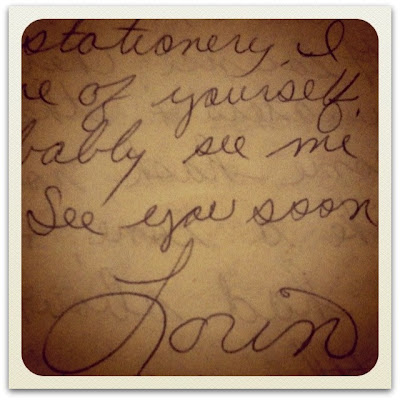 stationery. I
e of yourself.
bably see me
See you soon
Lorin